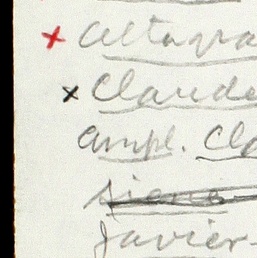 x Altagra
x Claude
Ampl. Cla
Javier-